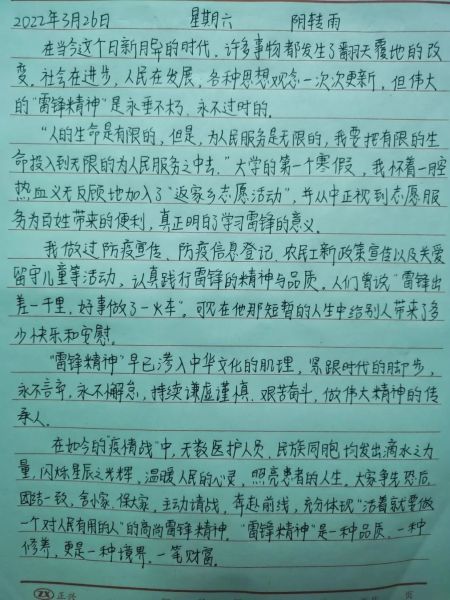 2022年3月26日 星期六 阴转雨
在当今这个日新月异的时代，许多事物都发生了翻天覆地的改
变。社会在进步，人民在发展，各种思想观念一次次更新，但伟大
的“雷锋精神”是永垂不朽、永不过时的。
“人的生命是有限的，但是，为人民服务是无限的，我要把有限的生
命投入到无限的为人民服务之中去。”大学的第一个寒假，我怀着一腔
热血义无反顾地加入了“返家乡志愿活动”，并从中正视到志愿服
务为百姓带来的便利，真正明白了学习雷锋的意义。
我做过防疫宣传、防疫信息登记、农民工新政策宣传以及关爱
留守儿童等活动，认真践行雷锋的精神与品质。人们曾说“雷锋出
差一千里，好事做了一火车”。可见在他那短暂的人生中给别人带来了多
少快乐和安慰。
“雷锋精神”早已渗入中华文化的肌理，紧跟时代的脚步，
永不言弃，永不懈怠，持续谦虚谨慎、艰苦奋斗，做伟大精神的传
承人。
在如今的“疫情战”中，无数医护人员、民族同胞均发出滴水之力
量，闪烁星辰之光辉，温暖人民的心灵，照亮患者的人生。大家争先恐后、
团结一致，舍小家、保大家，主动请战，奔赴前线，充分体现“活着就要做
一个对人民有用的人”的高尚雷锋精神。“雷锋精神”是一种品质，一种
修养，更是一种境界，一笔财富。
ZX 正兴
页